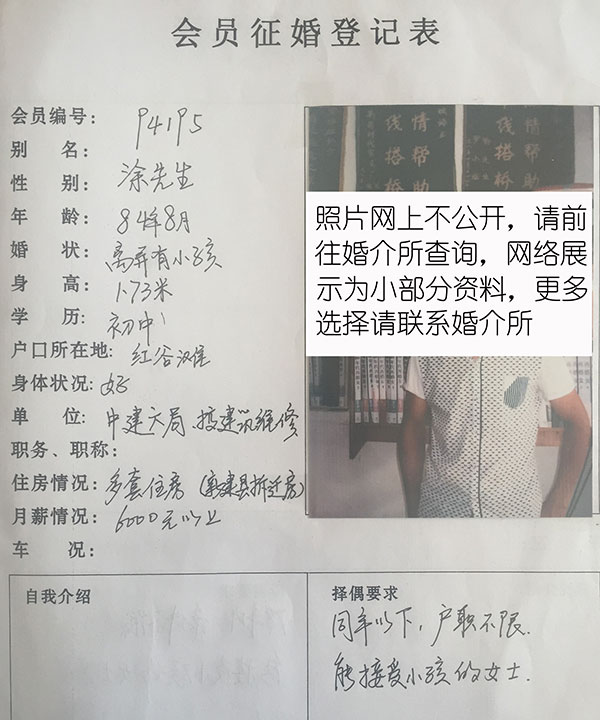 会员征婚登记表
会员编号: 94195
别 名:
性 别: 涂先生
年 龄: 84年8月
婚 状: 离异有小孩
身 高: 1.73米
学 历: 初中
户口所在地: 红谷
身体状况: 好
单 位: 中建大局 搞建筑维修
职务、职称:
住房情况: 多套住房 (新建县拆迁房)
月薪情况: 6000元以上
车 况:
情帮助
线搭桥
情帮助
线搭桥
照片网上不公开，请前
往婚介所查询，网络展
示为小部分资料，更多
选择请联系婚介所
自我介绍
择偶要求
同年以下，户职不限.
能接受小孩的女士.